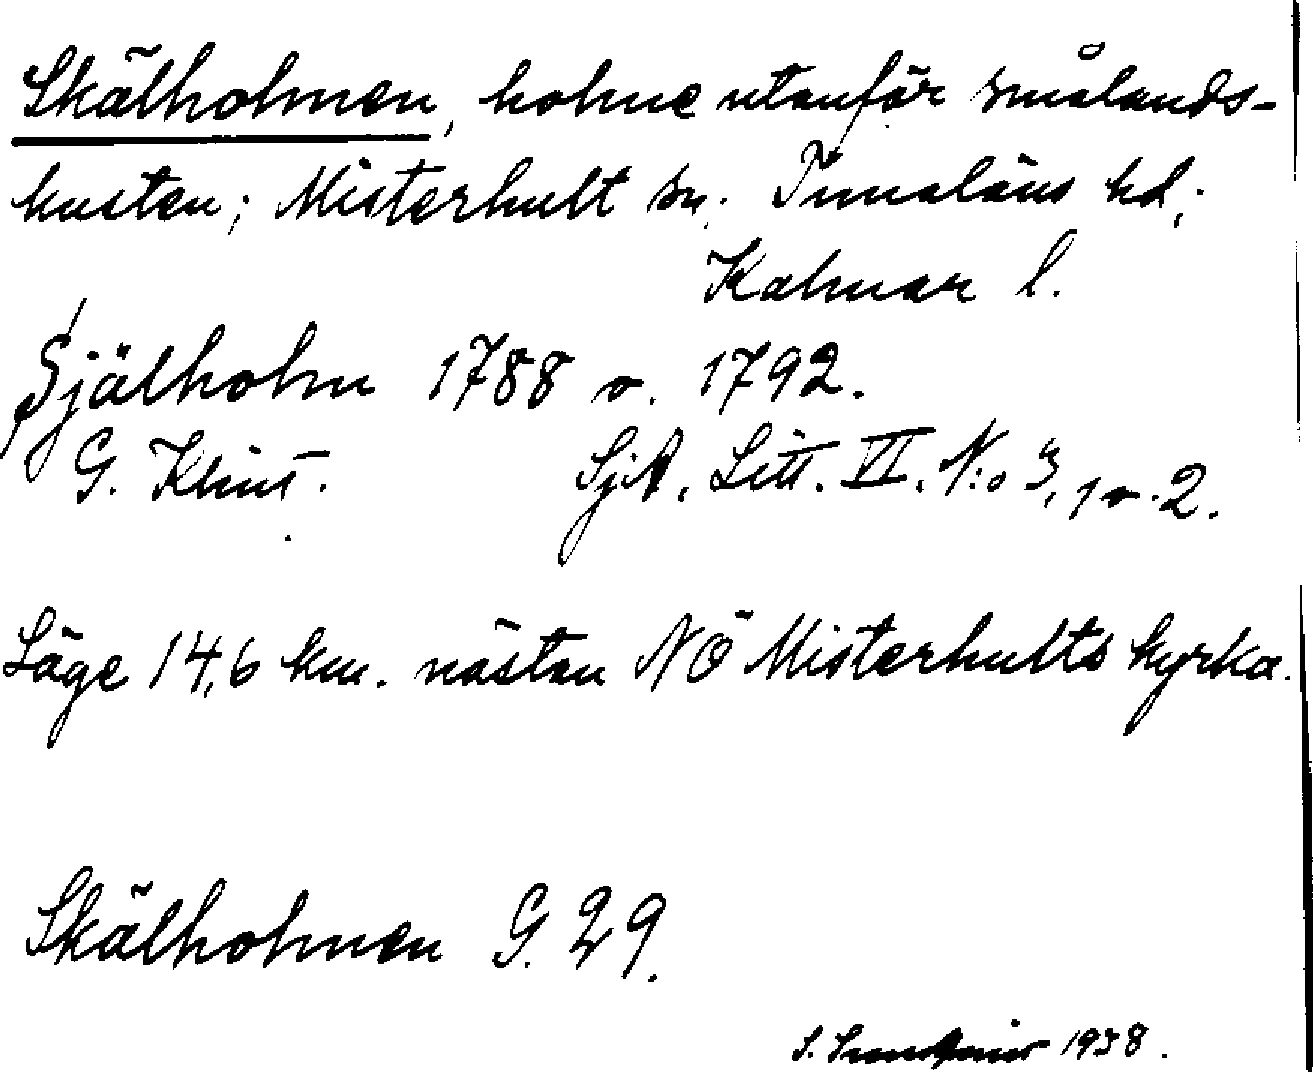 Skälholmen, holme utanför smålands-
kusten; Misterhult sn. Tunaläns hd;
Kalmar l.
Själholm 1788 o. 1792.
G. Klint. SjA. Litt. VI. N:o 3, 1 o. 2.
Läge 14,6 km. nästan NÖ Misterhults kyrka.
Skälholmen G. 29.
S. 1938.